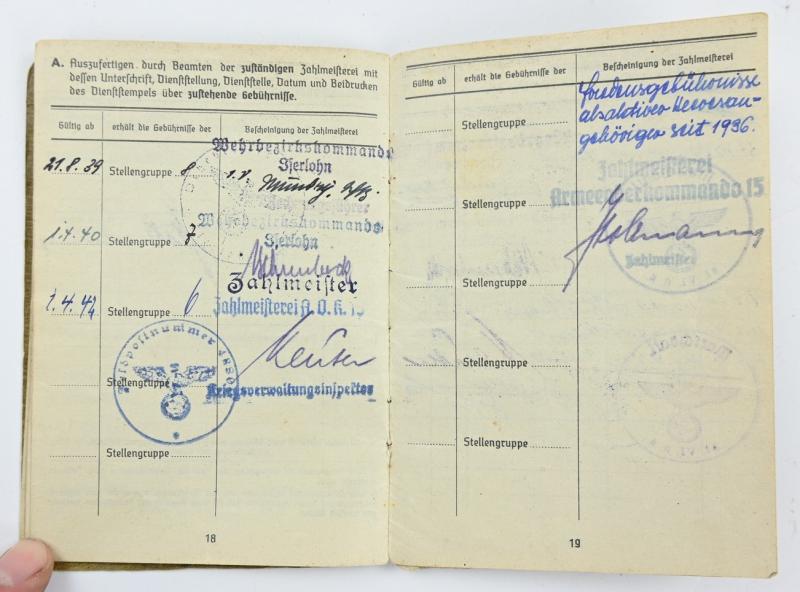 A. Auszufertigen durch Beamten der zuständigen Zahlmeisterei mit
dessen Unterschrift, Dienststellung, Dienststelle, Datum und Beidrucken
des Dienststempels über zustehende Gebührnisse.
Gültig ab
erhält die Gebührnisse der
Bescheinigung der Zahlmeisterei
Wehrbezirkskommando
Iserlohn
21.8.39 Stellengruppe 8
Wehrbezirkskommando
1.4.40 Stellengruppe 7 Iserlohn
Zahlmeister
1.4.42 Stellengruppe 6 Zahlmeisterei A.O.K. 15
Feldpostnummer
Stellengruppe
Kriegsverwaltungsinspektor
Stellengruppe
18
Gültig ab
erhält die Gebührnisse der
Bescheinigung der Zahlmeisterei
Friedensgebührnisse
als aktiver Heeresan-
Stellengruppe
gehöriger seit 1936.
Zahlmeisterei
Armeeoberkommando 15
Stellengruppe
Zahlmeister
Stellengruppe
Stellengruppe
Stellengruppe
19